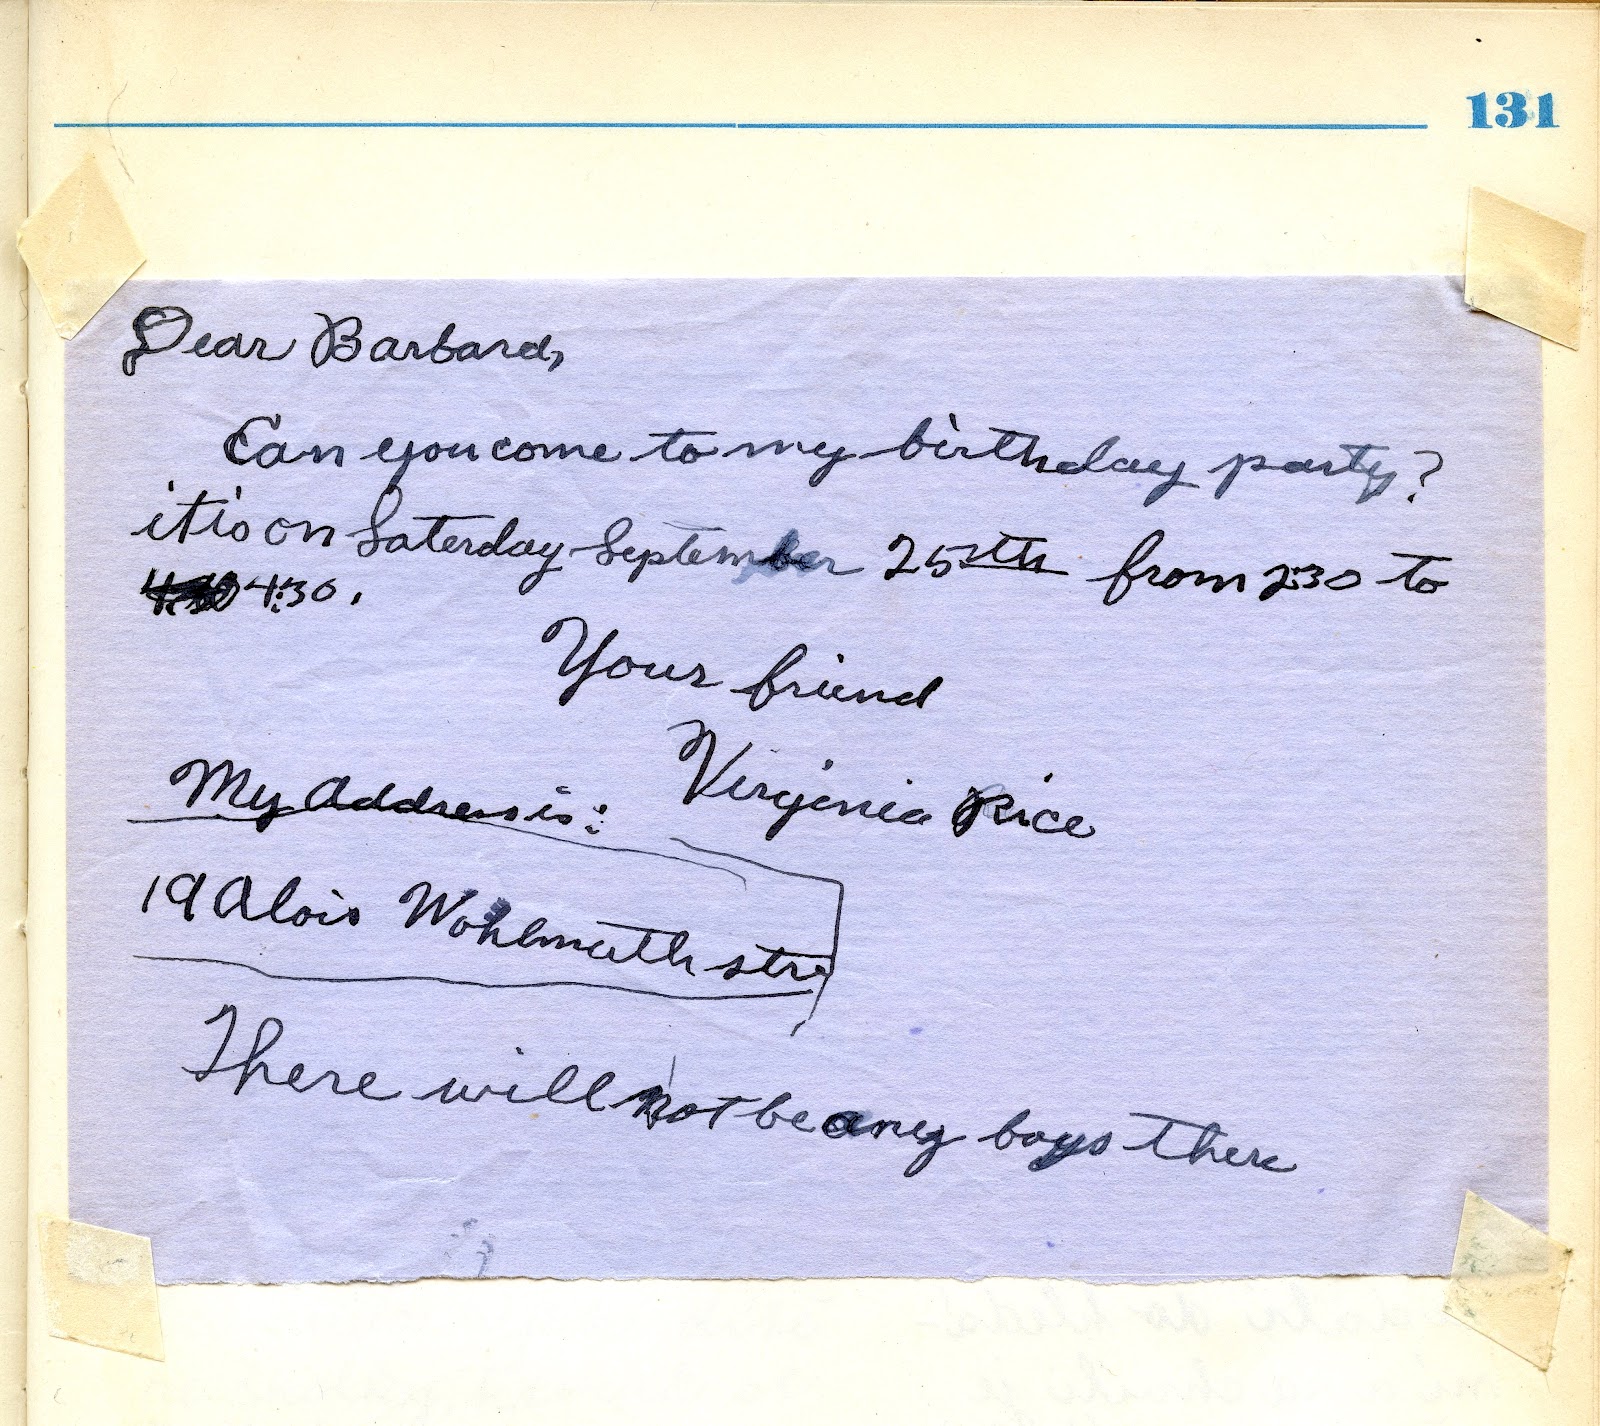 131
Dear Barbara,
Can you come to my birthday party?
it is on Saterday September 25th from 2:30 to
4:30.
Your friend
Virginia Rice
My Address is:
19 Alois Wohlmuth str.
There will not be any boys there